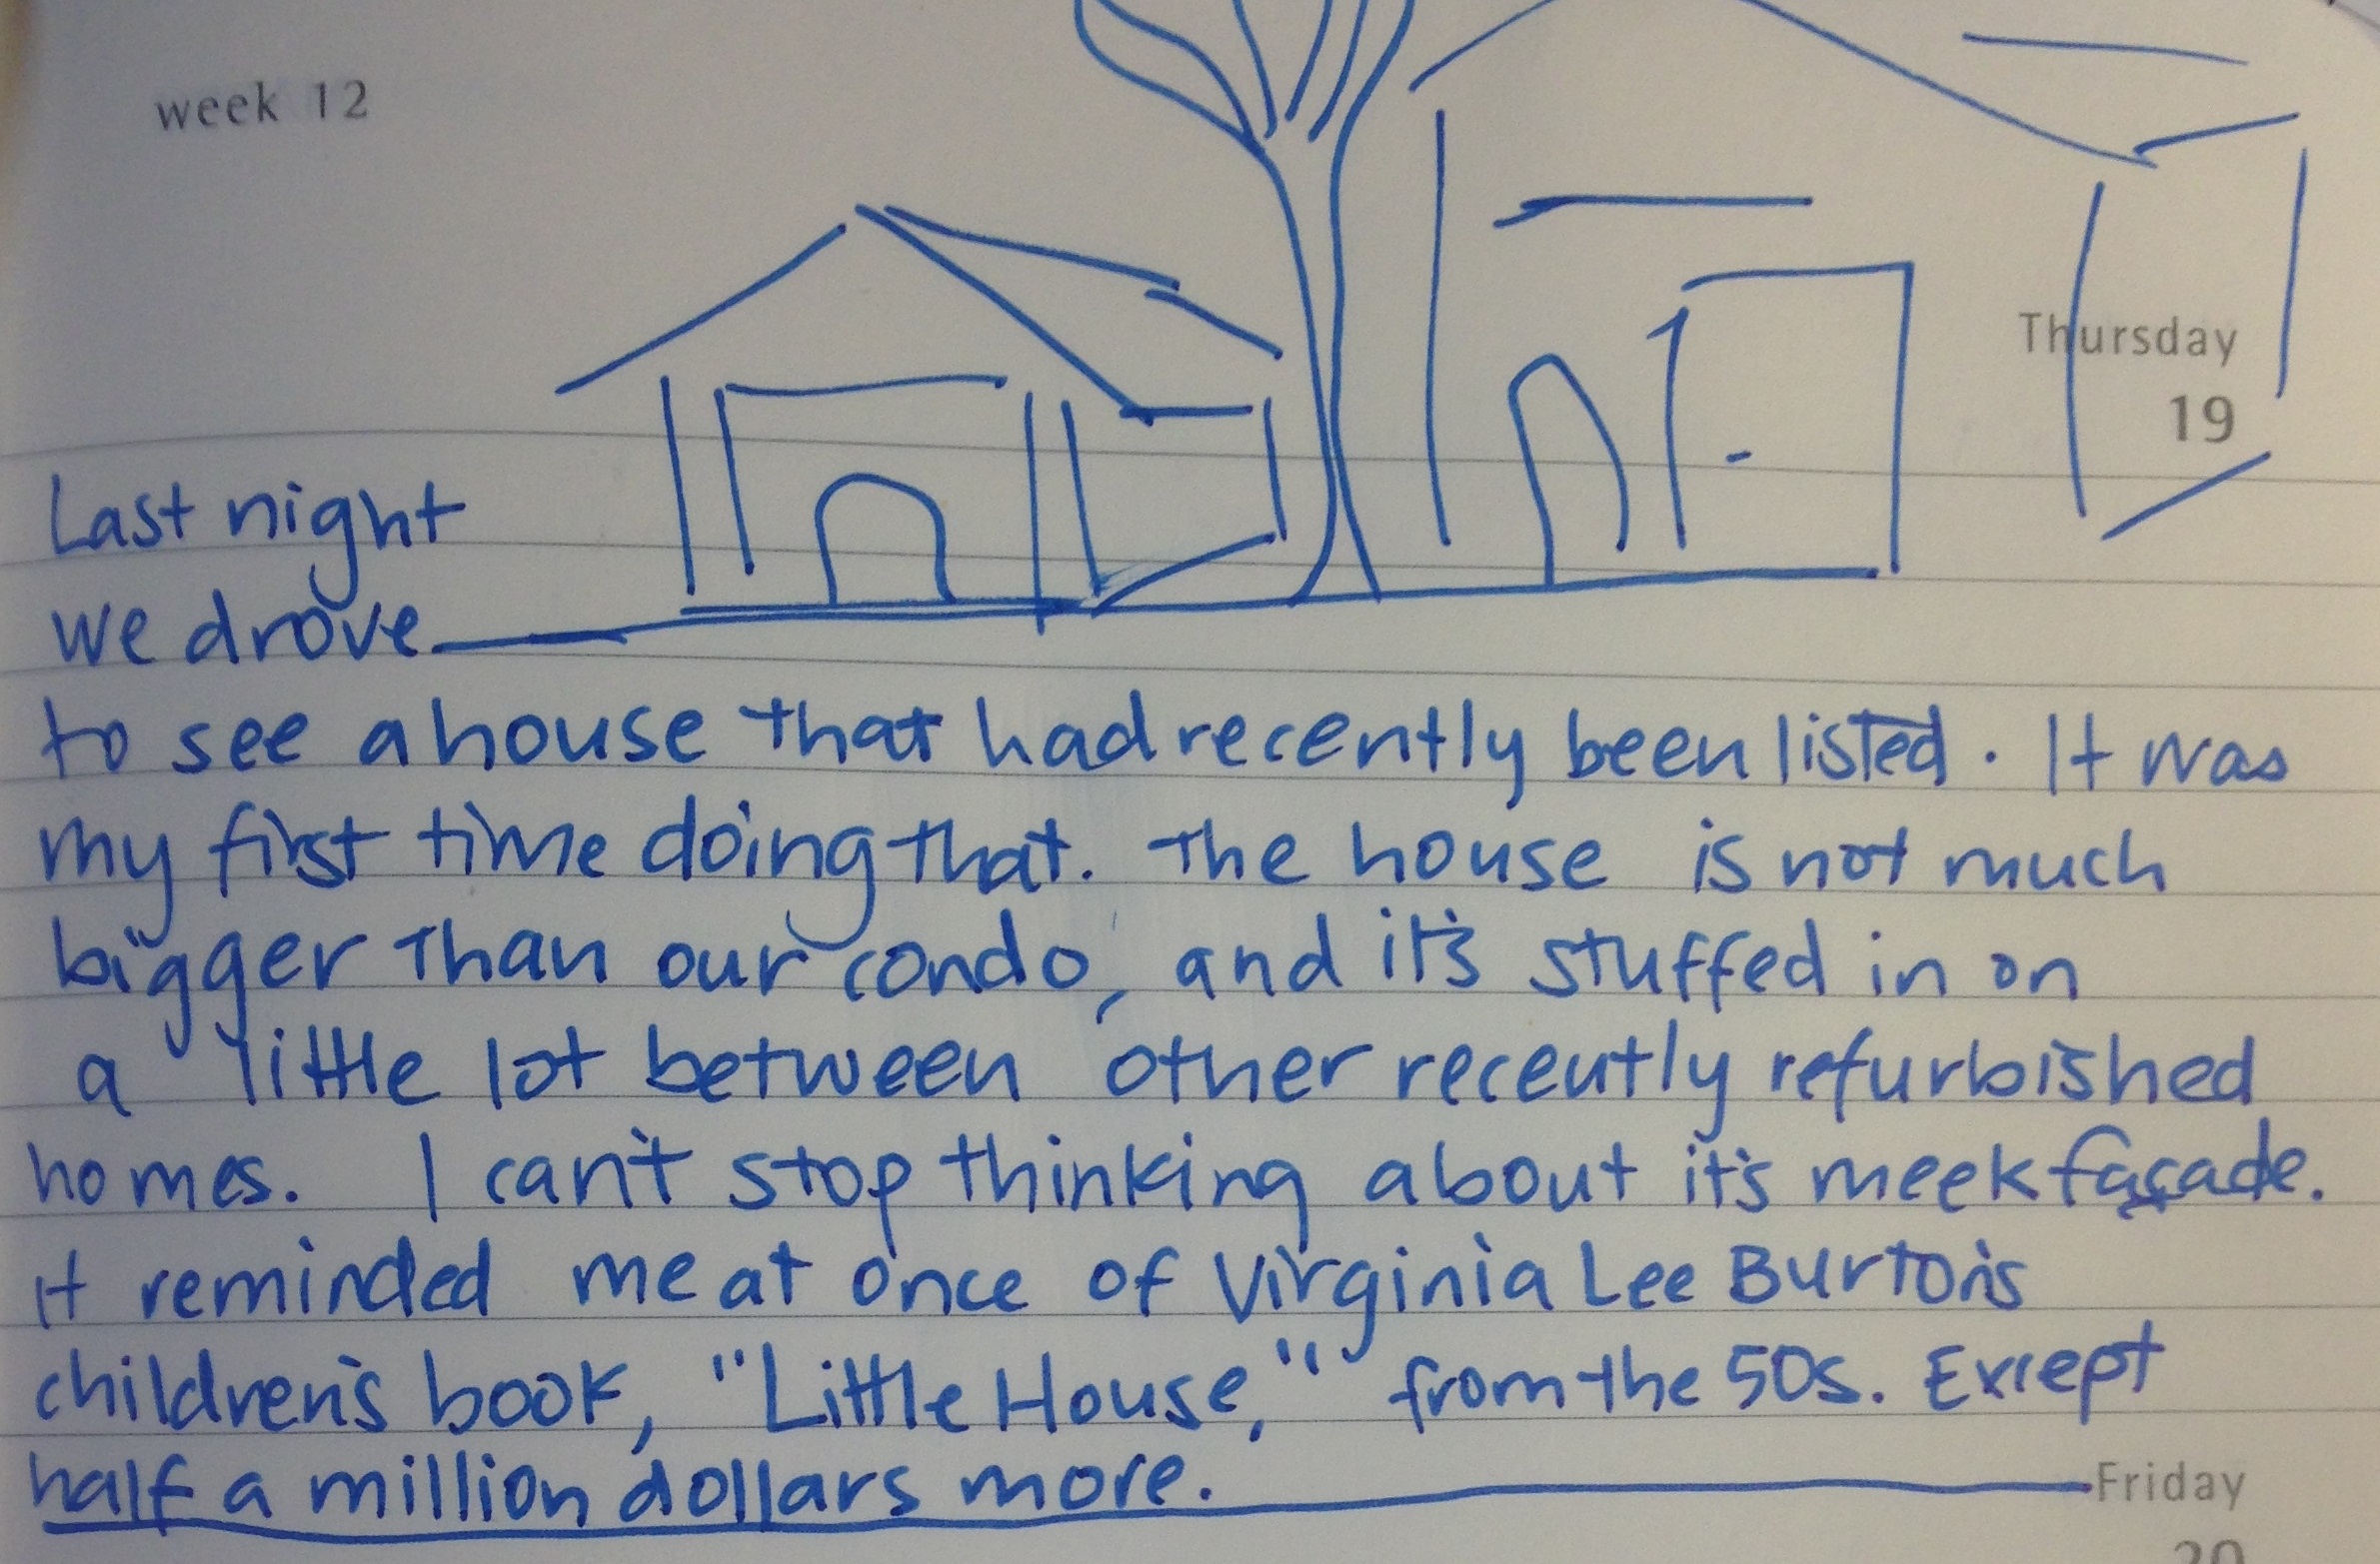 week 12
Thursday
19
Last night
we drove
to see a house that had recently been listed. It was
my first time doing that. The house is not much
bigger than our condo, and it's stuffed in on
a little lot between other recently refurbished
homes. I can't stop thinking about it's meek façade.
It reminded me at once of Virginia Lee Burton's
children's book, "Little House," from the 50s. Except
half a million dollars more.
Friday
20